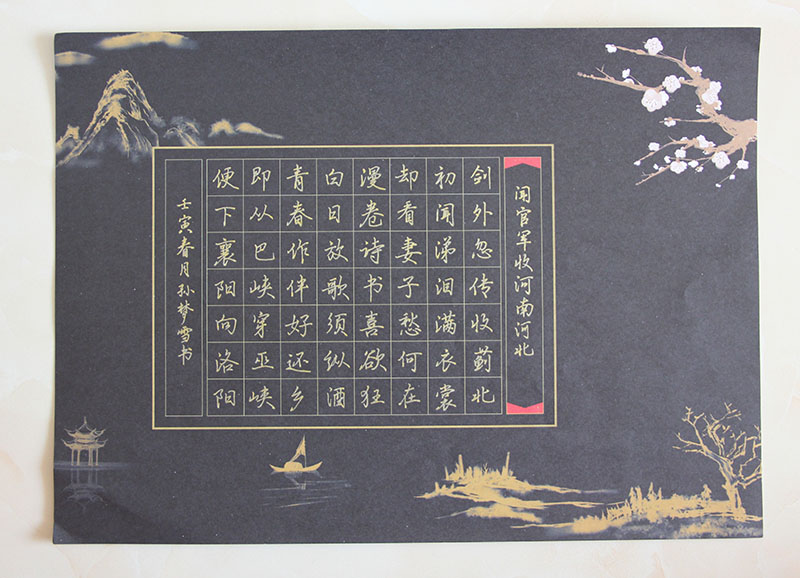 闻官军收河南河北
剑外忽传收蓟北
初闻涕泪满衣裳
却看妻子愁何在
漫卷诗书喜欲狂
白日放歌须纵酒
青春作伴好还乡
即从巴峡穿巫峡
便下襄阳向洛阳
壬寅春月孙梦雪书